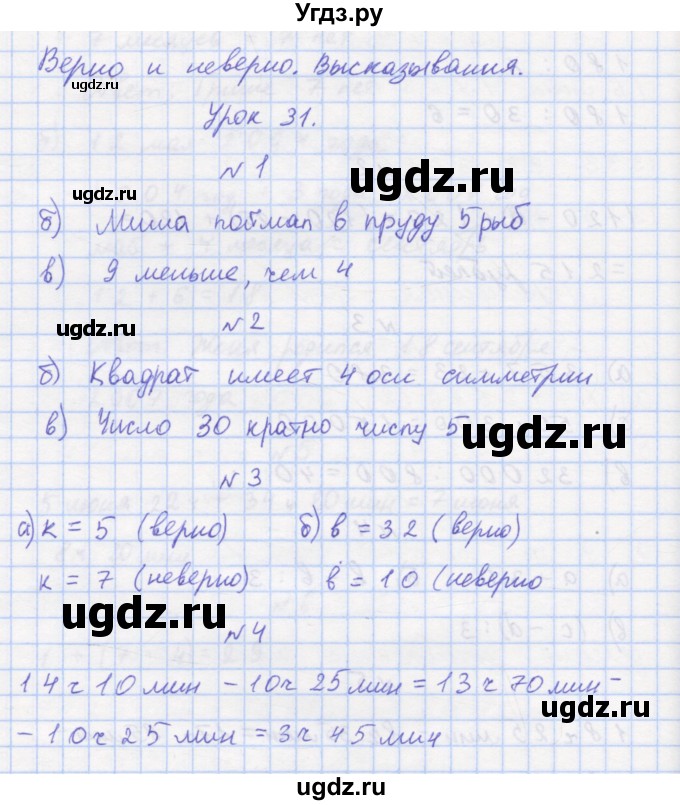 Угдз.ру
Верно и неверно. Высказывания.
Урок 31.
ugdz.ru
№1
ugdz.ru
ugdz.ru
б) Миша поймал в пруду 5 рыб
в) 9 меньше, чем 4
ugdz.ru
№2
б) Квадрат имеет 4 оси симметрии
ugdz.ru
в) Число 30 кратно числу 5
№3
а) к = 5 (верно) б) в = 32 (верно)
к = 7 (неверно) в = 10 (неверно
ugdz.ru
ugdz.ru
№4
14ч 10 мин - 10ч 25 мин = 13ч 70 мин -
ugdz.ru
- 10ч 25 мин = 3ч 45 мин
ugdz.ru
ugdz.ru